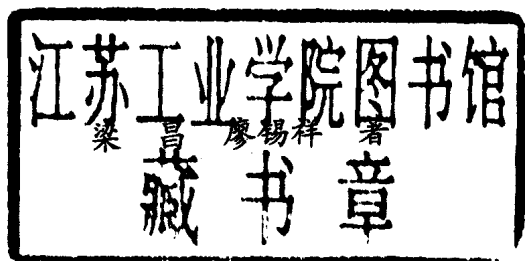 江苏工业学院图书馆
梁 昌 廖锡祥 著
藏书章